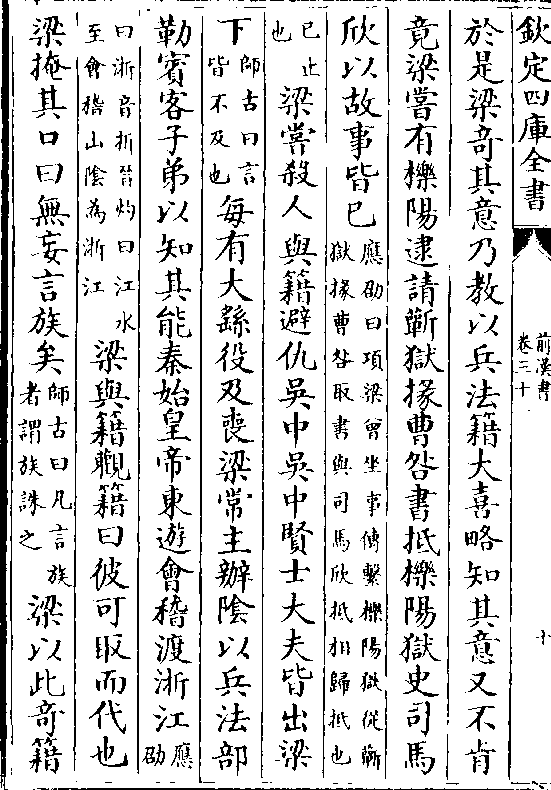 欽定四庫全書
前漢書
卷三十
十
於是梁奇其意乃教以兵法籍大喜略知其意又不肯
竟梁嘗有櫟陽逮請蘄獄掾曹咎書抵櫟陽獄史司馬
欣以故事皆已應劭曰項梁曾坐事傳繫櫟陽獄從蘄
獄掾曹咎取書與司馬欣抵相歸抵也
已止
也梁嘗殺人與籍避仇吳中吳中賢士大夫皆出梁
下師古曰言
皆不及也每有大繇役及喪梁常主辦陰以兵法部
勒賓客子弟以知其能秦始皇帝東遊會稽渡浙江應
劭
曰浙音折晉灼曰江水
至會稽山陰為浙江梁與籍觀籍曰彼可取而代也
梁掩其口曰無妄言族矣師古曰凡言族
者謂族誅之梁以此奇籍